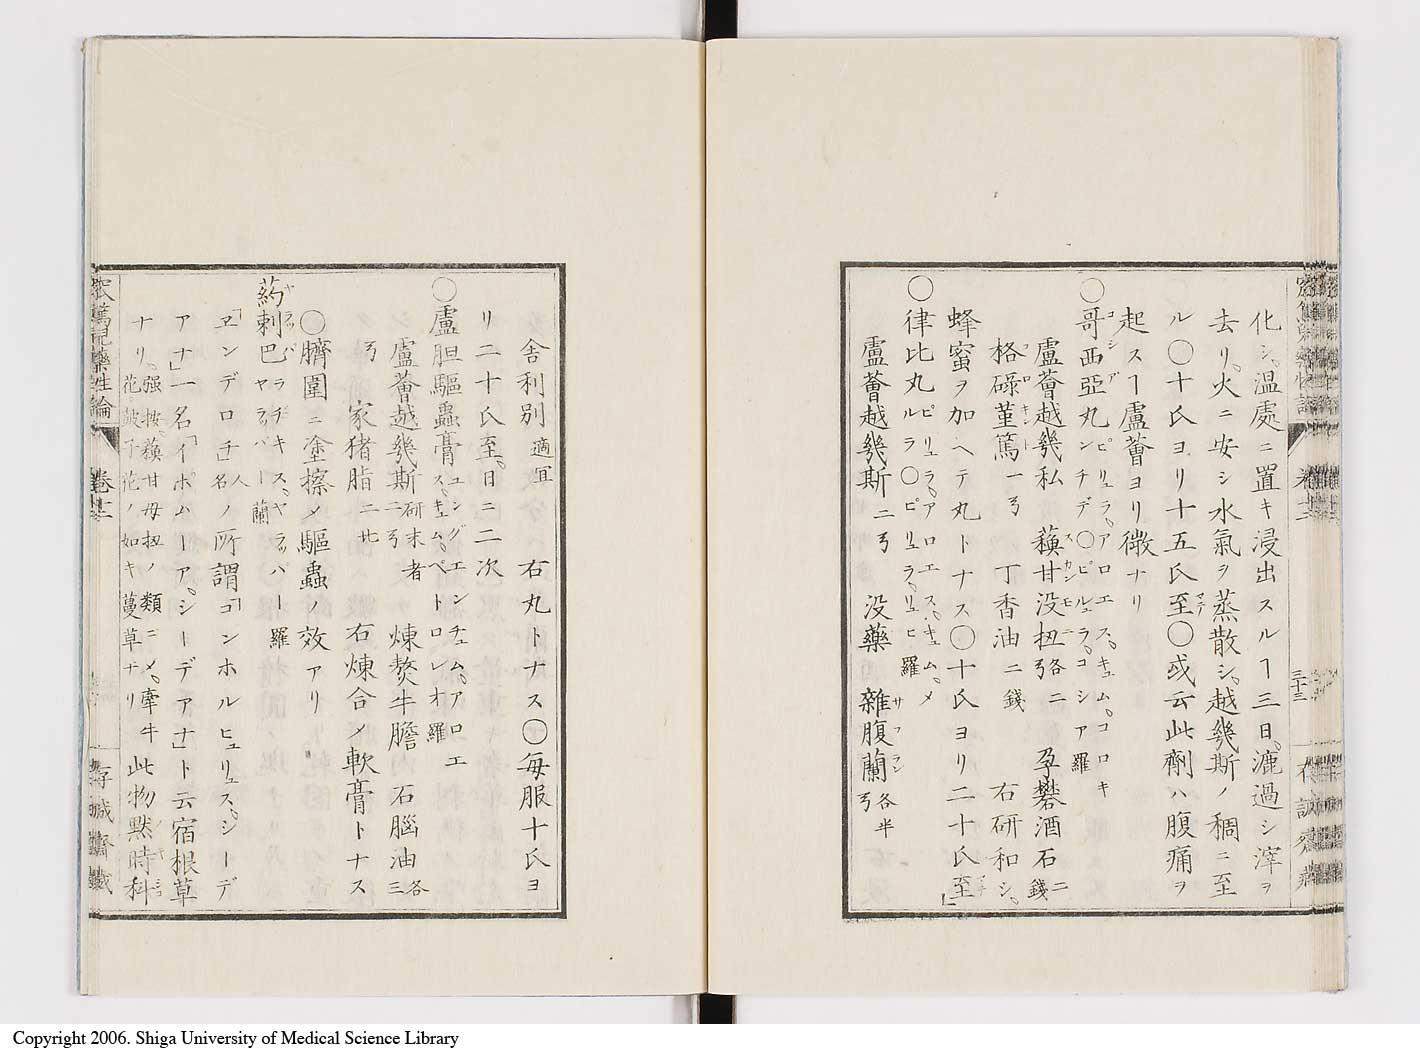 化シ。温處ニ置キ浸出スルヿ三日。漉過シ滓ヲ
去リ。火ニ安シ水氣ヲ蒸散シ。越幾斯ノ稠ニ至
ル〇十氏ヨリ十五氏至マデ〇或云此劑ハ腹痛ヲ
起スヿ盧薈ヨリ微ナリ
〇哥西亞丸コシア ピリュラ。アロエス。キュム。コロキンチデ〇ピルュラ。コシア 羅
盧薈越幾私 蘓甘没扭スカンモニー各二弓 孕礬酒石二錢
格碌菫篤コロキント一弓 丁香油二錢 右研和シ。
蜂蜜ヲ加ヘテ丸トナス〇十氏ヨリ二十氏至マデ」
〇律比丸 ピリュラ。アロエス。キュム。メルラ〇ピリュラ。リュヒ 羅
盧薈越幾斯二弓 没藥 雜腹蘭サフラン各半弓
舎利別適宜 右丸トナス〇毎服十氏ヨ
リ二十氏至。日ニ二次
〇盧胆驅蟲膏 ュングエンチュム。アロエス。キュム。ペトロレオ 羅
盧薈越幾斯研末者二弓 煉熬牛膽 石腦油各三弓
家猪脂二廿 右煉合メ軟膏トナス
〇臍圍ニ塗擦メ驅蟲ノ效アリ
葯刺巴ヤラッパ ラヂキス。ヤラッパー 羅 ヤラッパー 蘭
「ヱンデロヿ」人名ノ所謂「コンホルヒュリュス。シーデ
アナ」一名「イポムーア。シーデアナ」ト云宿根草
ナリ。强按蘓甘母扭ノ類ニメ。牽牛花皷子花ノ如キ蔓草ナリ 此物默時科
卷十二
三十三
存誠齋藏